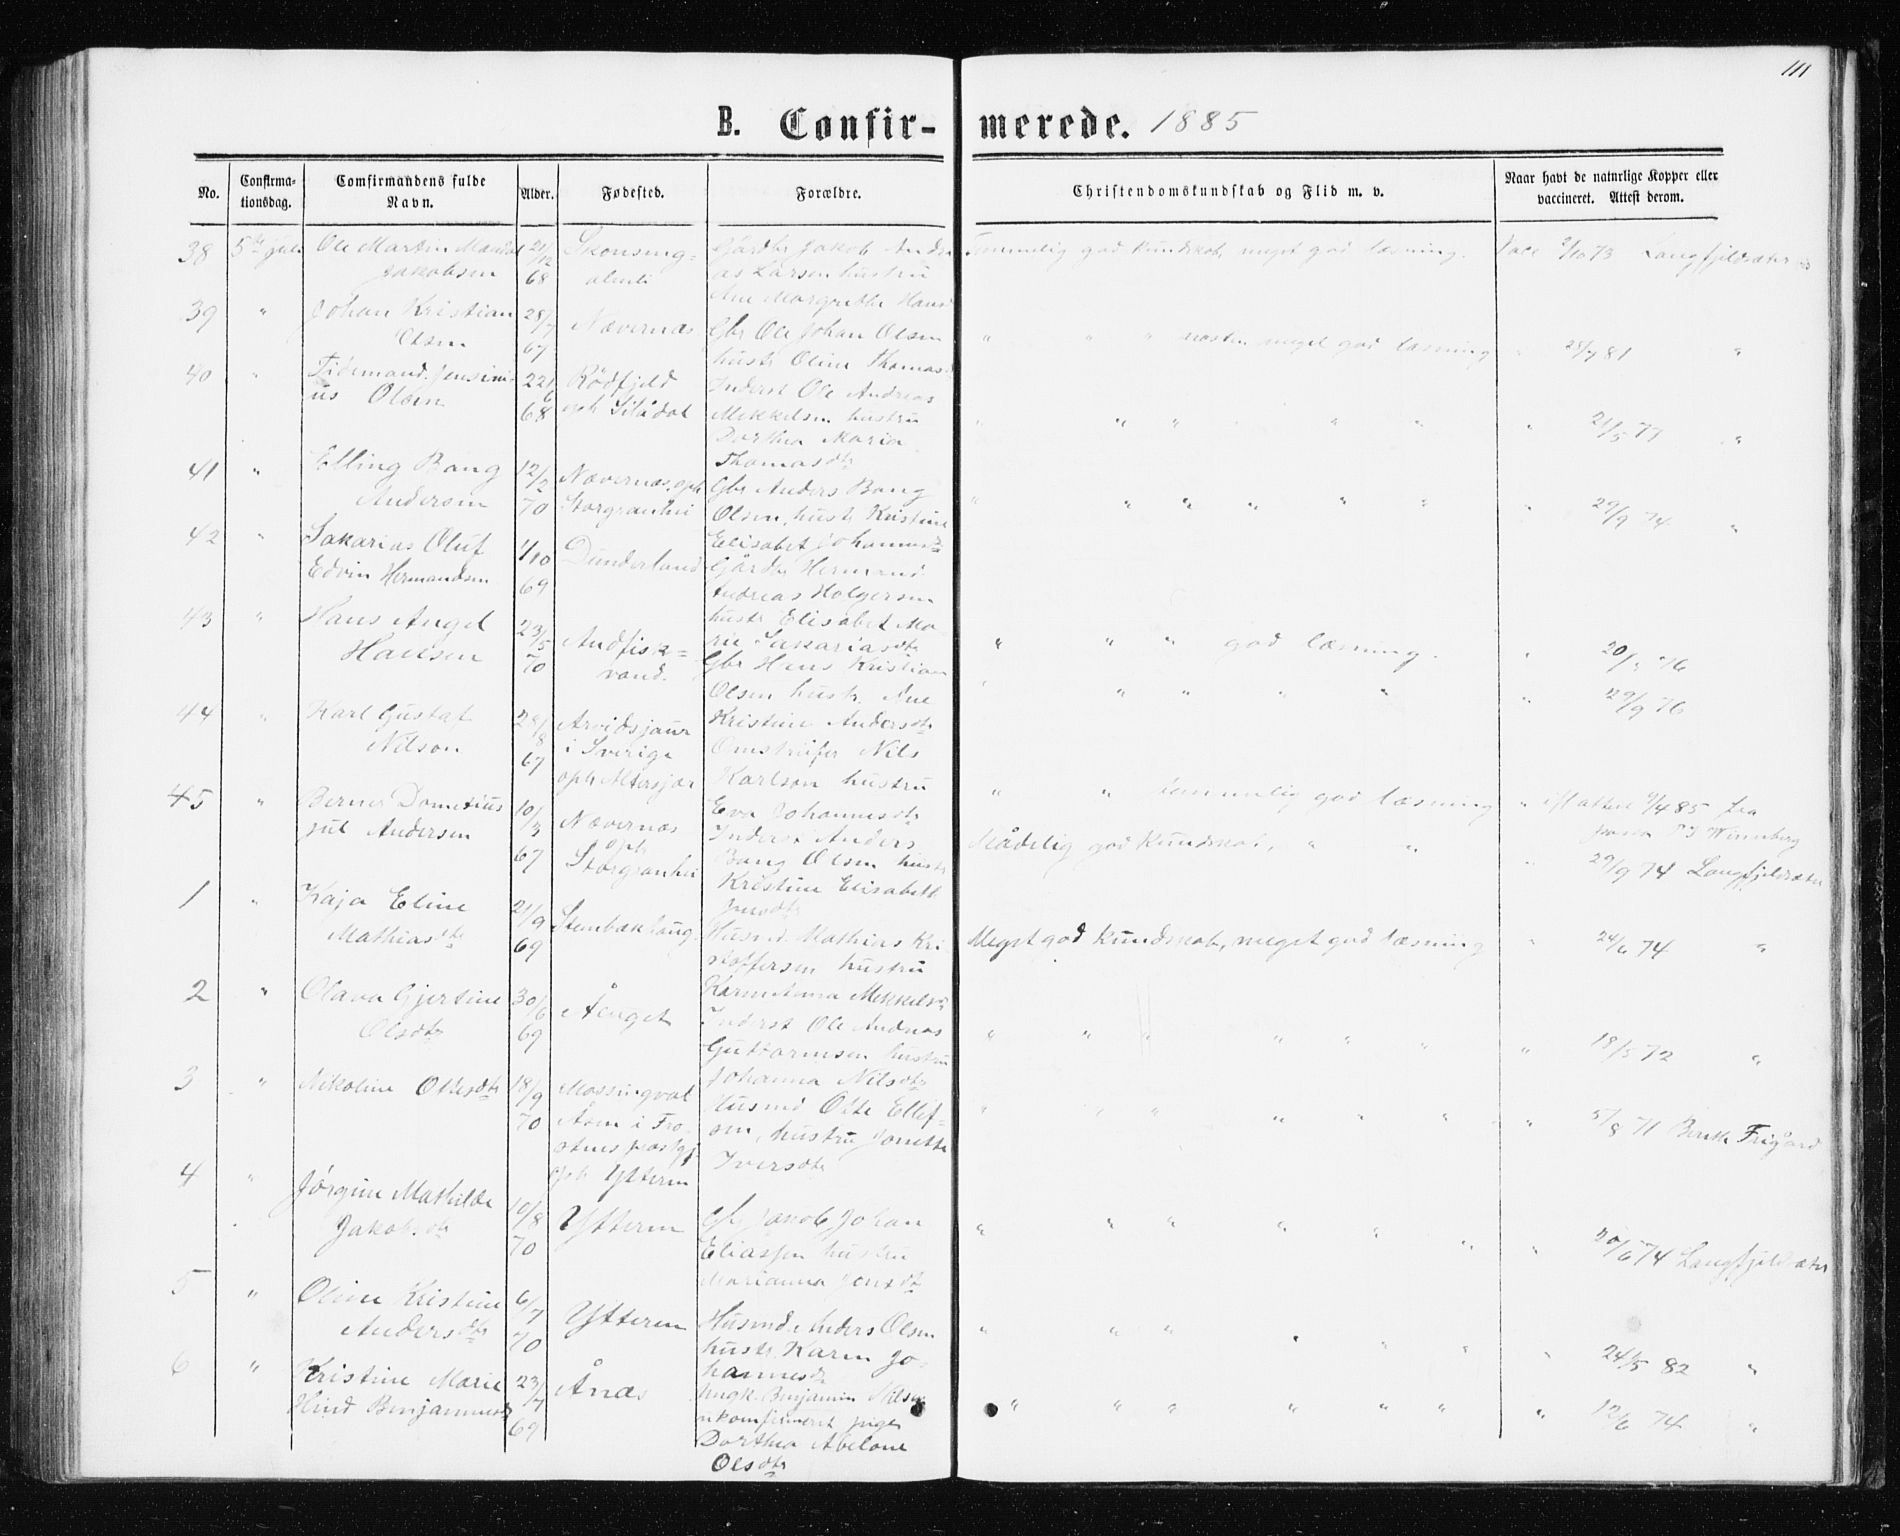 111
B. Confir-merede. 1885
No.
Confirma-
tionsdag.
Comfirmandens fulde
Navn.
Alder.
Fødested.
Forældre.
Christendomskundskab og Flid m. v.
Naar havt de naturlige Kopper eller
vaccineret. Attest derom.
38 5te juli Ole Martin
Jakobsen
21/12
68
Gårdbr Jakob Andre
as Larsen hustru
Ane Margrethe Hansd
Temmelig god Kundskab, meget god læsning.
Vacc 9/10 73 Langfjeldsæter
39 " Johan Kristian
Olsen
28/7
67
Nævernæs
Gbr Ole Johan Olsen
hustr Oline Thomasd
" " " næsten meget god læsning " 28/7 81 "
40 " Tidemand Jensini-
us Olsen
22/6
68
Rödfjeld
oph Silådal
Inderst Ole Andreas
Mekkelsen hustru
Dorthea Maria
Thomasdtr
" " " " " " " 21/5 77 "
41 " Elling Bang
Andersen
12/2
70
Nævernæs, oph
Storgranhei
Gbr Anders Bang
Olsen, hustr Kristine
Elisabet Johannesdtr
" " " " " " " 29/9 74 "
42 " Sakarias Oluf
Edvin Hermandsen
1/10
69
Dunderland
Gårdbr Hermand
Andreas Holgersen
hustr Elisabet Ma-
rie Sakariasdtr
" " " god læsning. " 20/ 76
43 " Hans Angel
Hansen
23/5
70
Andfisk=
vand.
Gbr Hans Kristian
Olsen hustr. Ane
Kristine Andersdtr
" " " " " " 29/9 76
44 " Karl Gustaf
Nilson
28/8
67
Arvidsjaur
i Sverige
oph Altersjær
Omstreifer Nils
Karlson hustru
Eva Johannesdtr
" " temmelig god læsning " attest 9/4 85 fra
45 " Berner Dometius
Jul Andersen
10/3
67
Nævernæs
oph
Storgranhei
Inderst Anders
Bang Olsen hustr
Kristine Elisabeth
Jensdtr
Mådelig god Kundskab, " " " 29/9 74 Langfjeldsæter
1 " Kaja Eline
Mathiasdtr
21/9
69
Stenbækhaug
Husmd. Mathias Kri-
stoffersen hustru
Karen Anna Mekkelsd
Meget god Kundskab, meget god læsning " 24/6 74 "
2 " Olava Gjertine
Olsdtr
30/6
69
Inderst Ole Andreas
Guttormsen hustru
Johanna Nilsdtr
" " " " " " " 18/5 72 "
3 " Nikoline Ottesdtr
18/9
70
Husmd Otte Ellef-
sen, hustru Jonette
Iversdtr
" " " " " " " 5/8 71 Bersk Frigård
4 " Jørgine Mathilde
Jakobsdtr
10/8
70
Ytteren
Gbr Jakob Johan
Eliassen hustru
Marianna Jensdtr
" " " " " " " 20/6 74 Langfjeldsæter
5 " Oline Kristine
Andersdtr
6/7
70
Ytteren
Husmd. Anders Olsen
hustr. Karen Jo-
hannesdtr
" " " " " " " 24/5 82 "
6 " Kristine Marie
Hind Benjaminsdtr
23/7
69
Ånæs
Ungk. Benjamin Nilsen
ukonfirmeret pige
Dorthea Abelone
Olsdtr
" " " " " " " 12/6 74 "